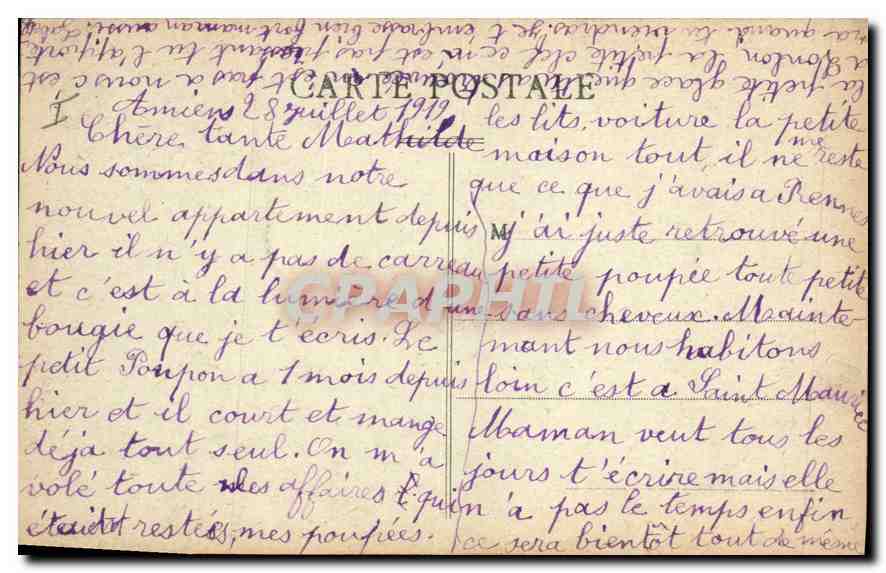 CARTE POSTALE
I
Amiens 28 juillet 1919
Chère tante Mathilde
Nous sommes dans notre
nouvel appartement depuis
hier il n'y a pas de carreau
et c'est à la lumière d'une
bougie que je t'écris. Le
petit Poupon a 1 mois depuis
hier et il court et mange
déja tout seul. On m'a
volé toute mes affaires qui
étaient restées, mes poupées.
les lits, voiture la petite
maison tout, il ne me reste
que ce que j'avais a Rennes
j'ai juste retrouvé une
petite poupée toute petite
sans cheveux. Mainte-
nant nous habitons
loin c'est a Saint Maurice
Maman veut tous les
jours t'écrire mais elle
n'a pas le temps enfin
ce sera bientôt tout de même
la petite glace que n'est pas a nous c'est
a Tonton la petite clef ce n'est pas pressant tu l'apporte
ra quand tu viendras. Je t'embrasse bien fort maman aussi.
M
CPAPHIL